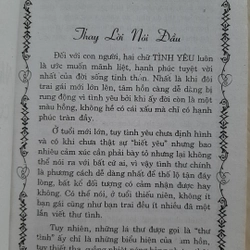 Thay Lời Nói Đầu
Đối với con người, hai chữ TÌNH YÊU luôn
là ước muốn mãnh liệt, hạnh phúc tuyệt vời
nhất của đời sống tinh thần. Nhất là khi đôi
trai gái mới lớn lên, tâm hồn càng dễ dàng bị
rung động vì tình yêu bởi khi ấy đời còn là một
màu hồng, không hề có cạm bẫy mà chỉ có hạnh
phúc tràn đầy.
Ở tuổi mới lớn, tuy tình yêu chưa định hình
và có khi chưa thật sự "biết yêu" nhưng bao
nhiêu cảm xúc cần phải bày tỏ nhưng lại không
thể nói ra với bất cứ ai, vì vậy thư chính
là phương cách dễ dàng nhất để thổ lộ tận đáy
lòng, bất kể đối tượng có cảm nhận được hay
không. Có thể nói, ở tuổi thiếu niên, không ít
bạn gái cũng như bạn trai đều ít nhiều đã một
lần viết thư tình.
Tuy nhiên, những lá thư được gọi là "thư
tình" ấy chỉ là những biểu hiện của